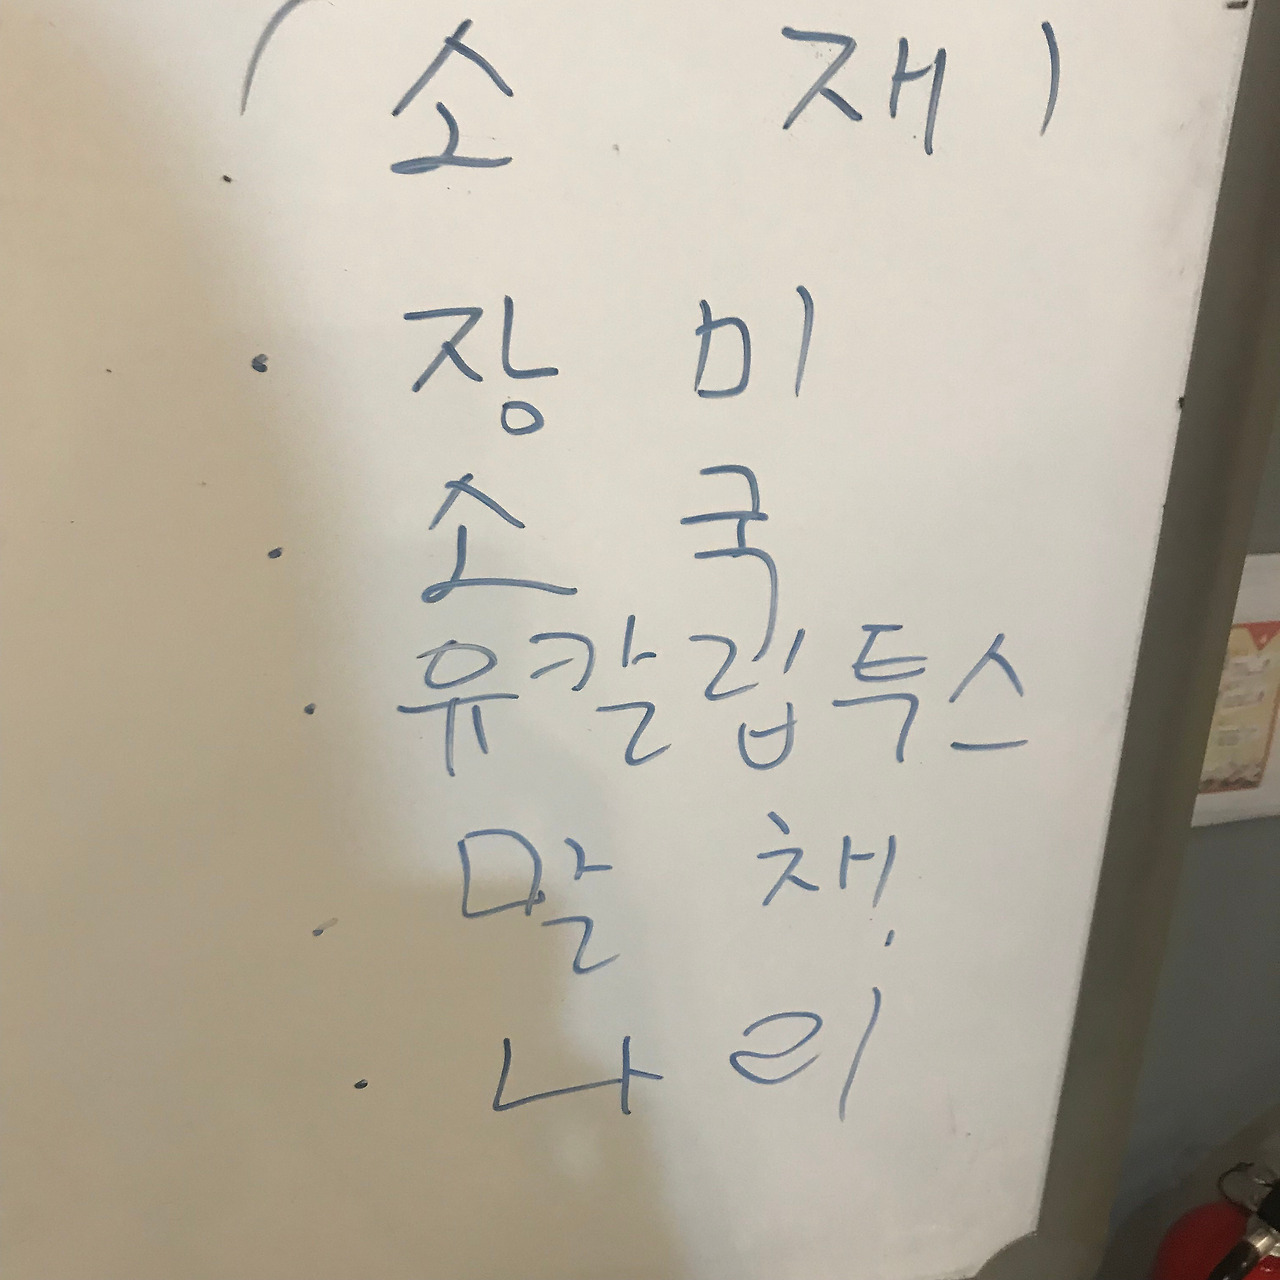 ( 소 재 )
· 장 미
· 소 국
· 유칼립투스
· 말 채
· 나 리